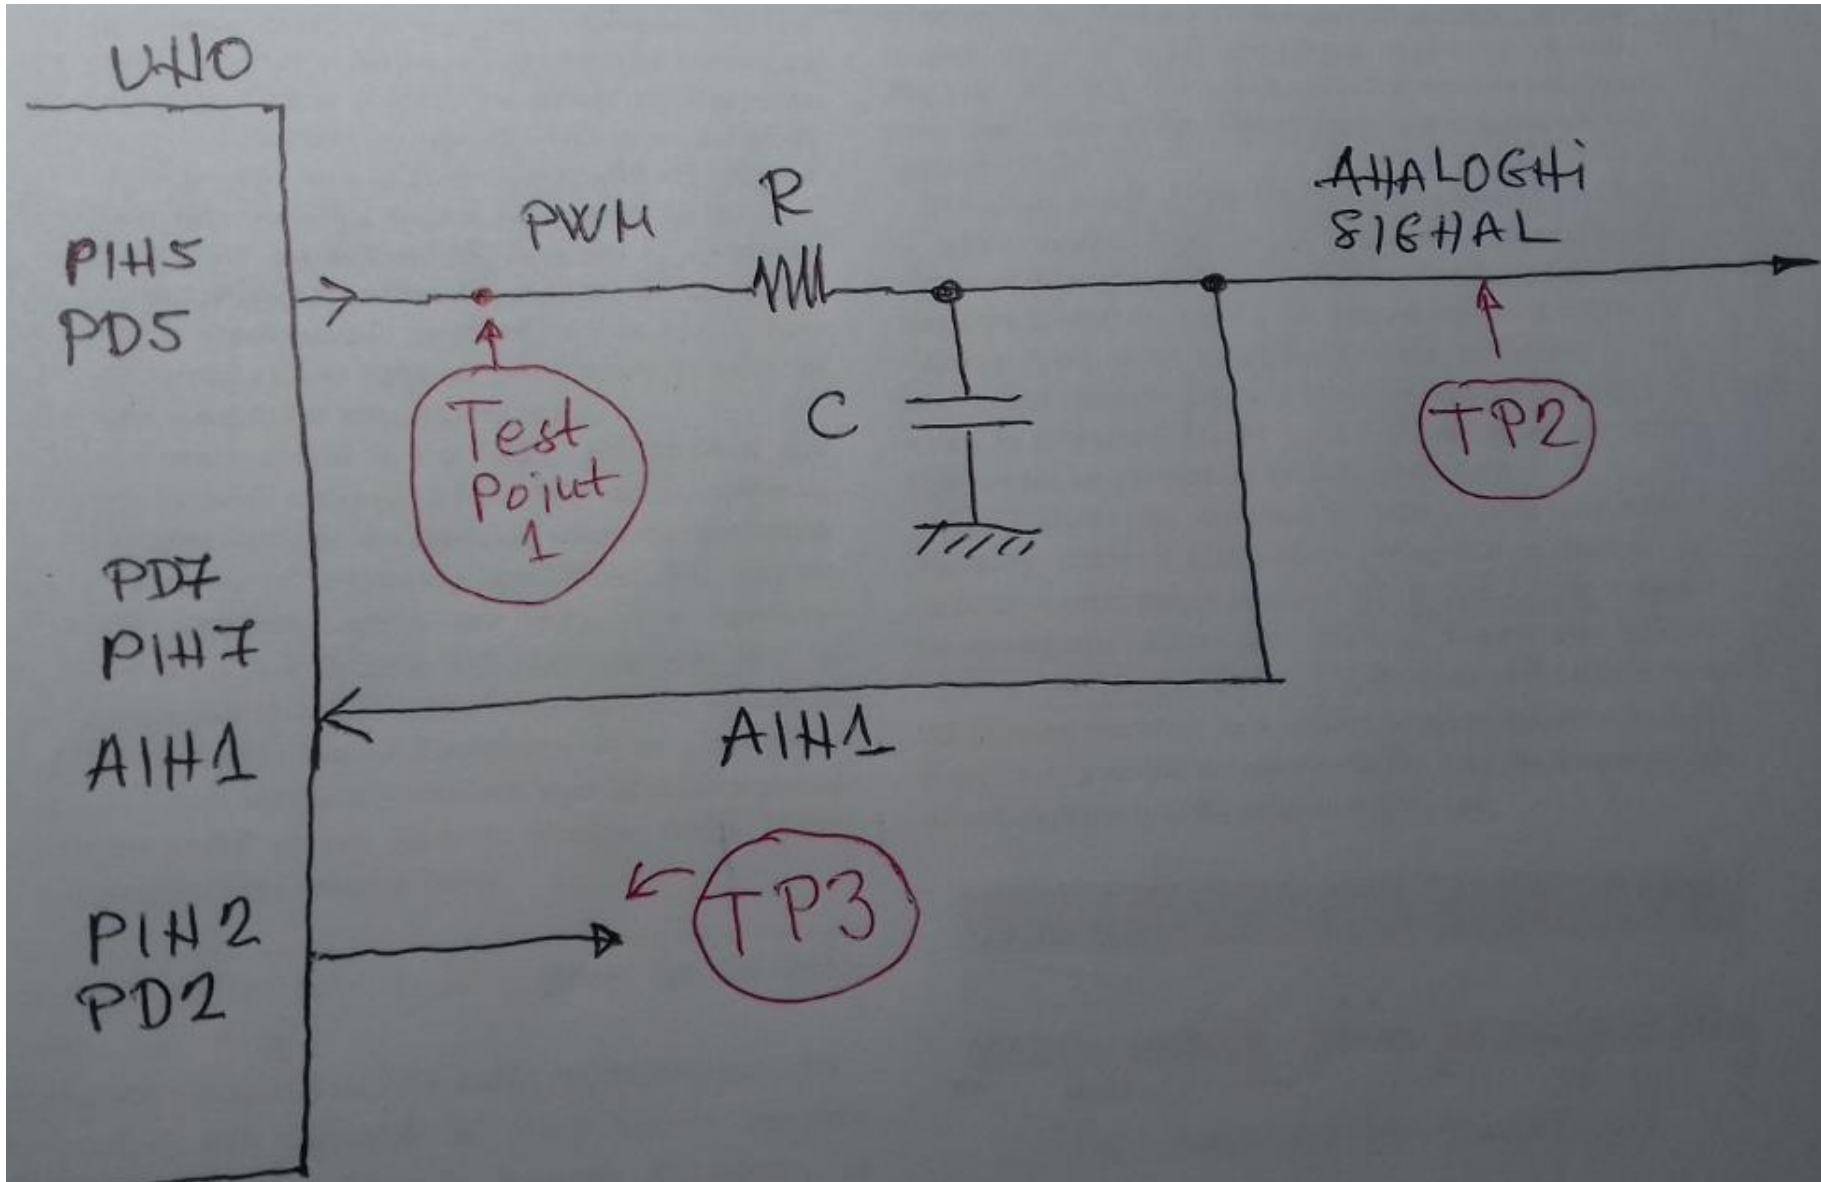 UNO
PIN5
PD5
PWM
R
ANALOGNi
SIGNAL
Test
Point
1
C
TP2
PD7
PIN7
AIN1
AIN1
TP3
PIN2
PD2